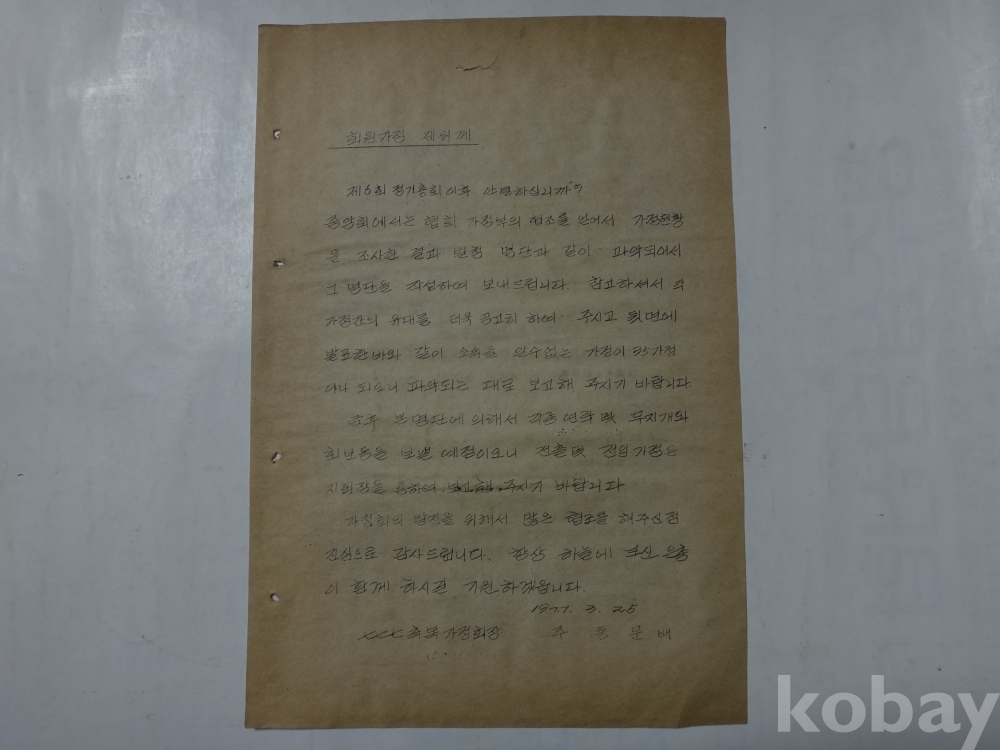 회원가정 제위께
제6회 정기총회이후 안녕하십니까?
중앙회에서는 협회 가정부의 협조를 얻어서 가정현황
을 조사한 결과 별첨 명단과 같이 파악되어서
그 명단을 작성하여 보내드립니다. 참고하셔서 각
가정간의 유대를 더욱 공고히 하여 주시고 뒷면에
발표한바와 같이 소속을 알수없는 가정이 35가정
이나 되오니 파악되는 대로 보고해 주시기 바랍니다.
추후 본 명단에 의해서 각종 연락 및 무지개와
회보등을 보낼 예정이오니 전출 및 전입 가정은
지회장을 통하여 보고해 주시기 바랍니다
가정회의 발전을 위해서 많은 협조를 해주신점
진심으로 감사드립니다. 항상 하늘에 크신 은총
이 함께 하시길 기원하겠읍니다.
1977. 3. 25
축복가정회장 주 동 문 배
kobay